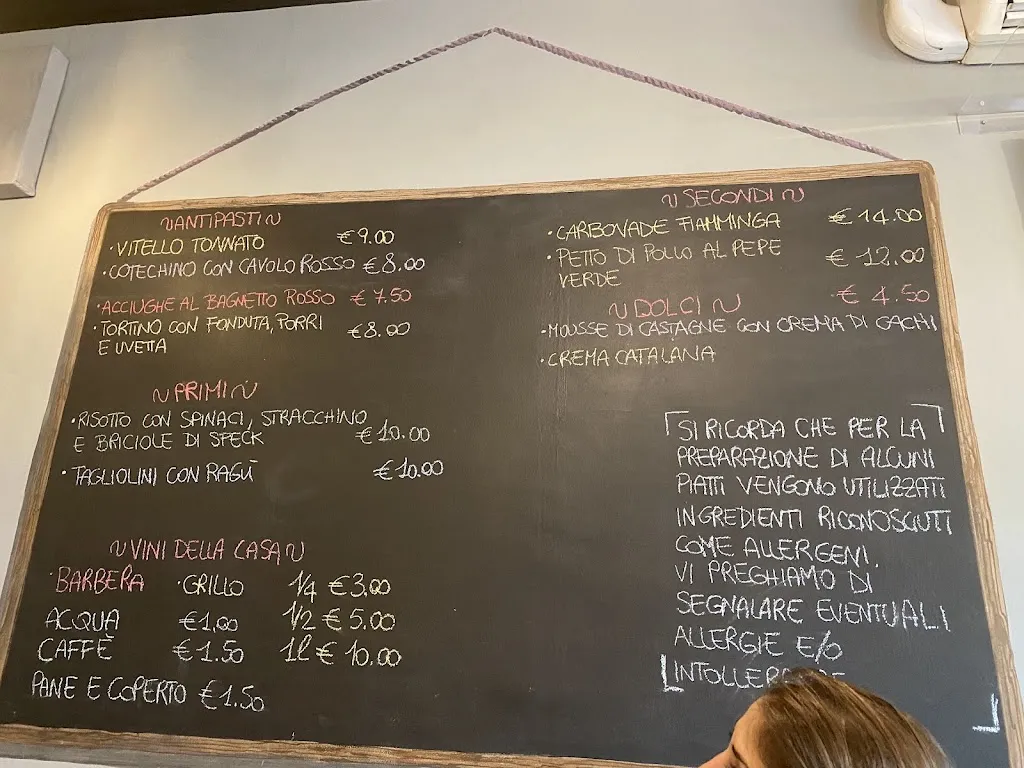 ~ANTIPASTI~
·VITELLO TONNATO €9.00
·COTECHINO CON CAVOLO ROSSO €8.00
·ACCIUGHE AL BAGNETTO ROSSO €7.50
·TORTINO CON FONDUTA, PORRI €8.00
E UVETTA
~PRIMI~
·RISOTTO CON SPINACI, STRACCHINO
E BRICIOLE DI SPECK €10.00
·TAGLIOLINI CON RAGÙ €10.00
~VINI DELLA CASA~
·BARBERA ·GRILLO 1/4 €3.00
ACQUA €1,00 1/2 €5.00
CAFFÈ €1.50 1l €10.00
PANE E COPERTO €1.50
~SECONDI~
·CARBOVADE FIAMMINGA €14.00
·PETTO DI POLLO AL PEPE €12.00
VERDE
~DOLCI~ €4.50
·MOUSSE DI CASTAGNE CON CREMA DI CACHI
·CREMA CATALANA
SI RICORDA CHE PER LA
PREPARAZIONE DI ALCUNI
PIATTI VENGONO UTILIZZATI
INGREDIENTI RICONOSCIUTI
COME ALLERGENI.
VI PREGHIAMO DI
SEGNALARE EVENTUALI
ALLERGIE E/O